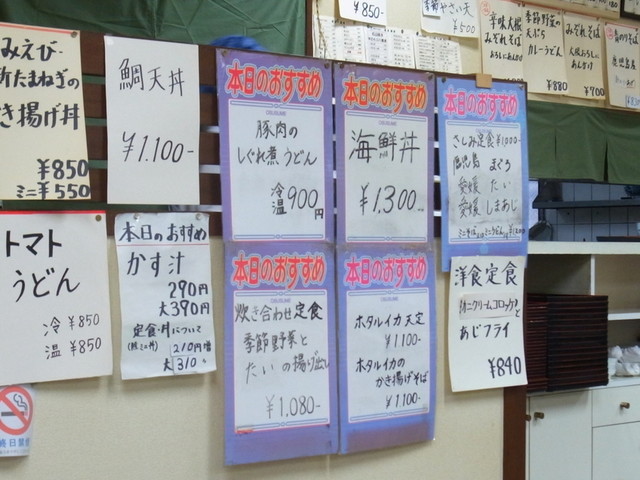 ¥850-
季節
やさい天
¥500
辛味大根
みぞれそば
季節野菜の
天ぷら
カレーうどん
¥880
みぞれそば
大根おろしに
あんかけ
¥900
みえび・
新たまねぎの
かき揚げ丼
¥850
ミニ ¥550
鯛天丼
¥1.100-
本日のおすすめ
豚肉の
しぐれ煮うどん
冷
温 900円
本日のおすすめ
海鮮丼
¥1.300-
本日のおすすめ
さしみ定食 ¥1000-
鹿児島 まぐろ
愛媛 たい
愛媛 しまあじ
トマト
うどん
冷 ¥850
温 ¥850
本日のおすすめ
かす汁
290円
大390円
定食・丼について
210円増
大 310〃
本日のおすすめ
炊き合わせ定食
季節野菜と
たいの揚げ出し
¥1.080-
本日のおすすめ
ホタルイカ天定
¥1100-
ホタルイカの
かき揚げそば
¥1100-
洋食定食
カニクリームコロッケと
あじフライ
¥840
終日禁煙